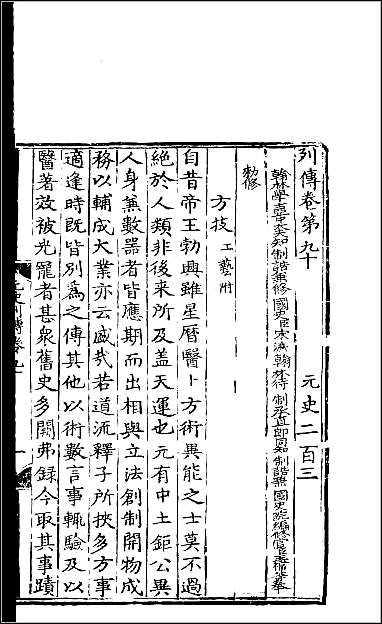 列傳卷第九十 元史二百三
翰林學士亞中大夫知制誥兼修國史臣宋濂翰林待制承直郎同知制誥兼國史院編修官臣王禕等奉
勑修
方技 工藝附
自昔帝王勃興雖星曆醫卜方術異能之士莫不過
絶於人類非後來所及蓋天運也元有中土鉅公異
人身兼數器者皆應期而出相與立法創制開物成
務以輔成大業亦云盛哉若道流釋子所挾多方事
適逢時既皆别為之傳其他以術數言事輒驗及以
醫著效被光寵者甚衆舊史多闕弗録今取其事蹟